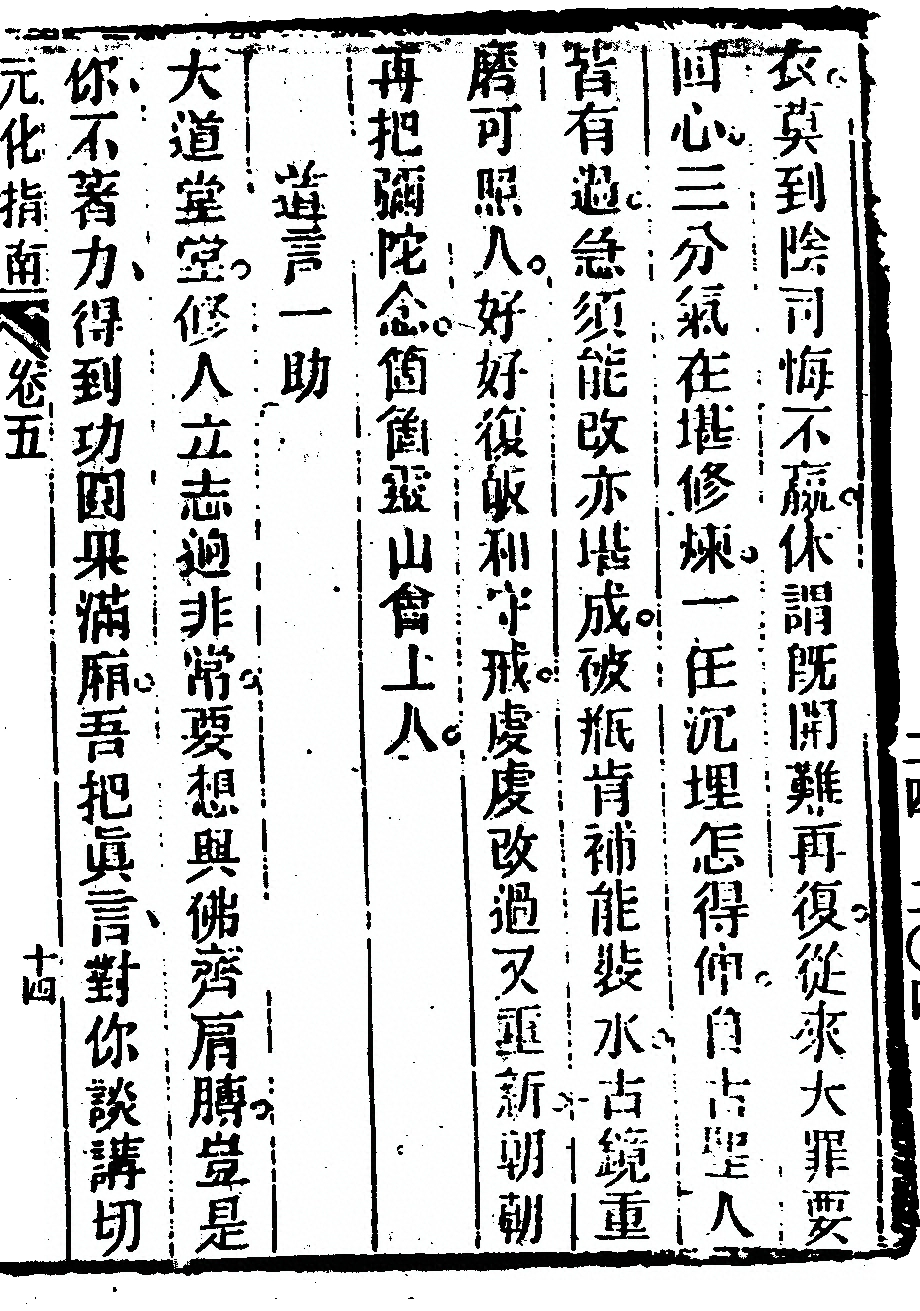 衣。莫到陰司悔不贏。休謂旣開難再復。從來大罪要
回心。三分氣在堪修煉。一任沉埋怎得伸。自古聖人
皆有過。急須能改亦堪成。破瓶肯補能裝水。古鏡重
磨可照人。好好復皈和守戒。處處改過又重新。朝朝
再把彌陀念。箇箇靈山會上人。
道言一助
大道堂堂。修人立志迥非常。要想與佛齊肩膊。豈是
你、不著力、得到功圓果滿廂。吾把眞言、對你談講切
元化指南
卷五
十四